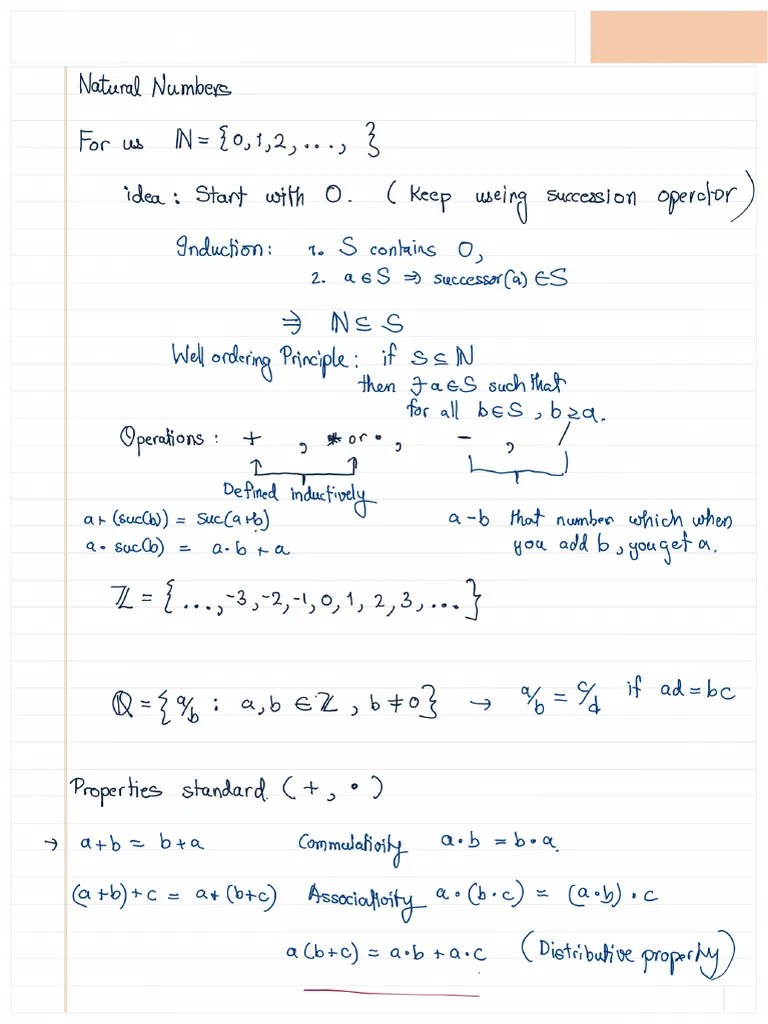 Natural Numbers
For us ℕ = {0,1,2, ..., }
idea : Start with 0. ( Keep useing succession operctor)
Induction: 1. S contains 0,
2. a ∈ S ⇒ successor(a) ∈ S
⇒ ℕ ⊆ S
Well ordering Principle: if S ⊆ ℕ
then ∃ a ∈ S such that
for all b ∈ S , b ≥ a.
Operations : + , * or • , - , /
Defined inductively
a + (suc(b)) = suc(a+b)
a • suc(b) = a • b + a
a - b that number which when
you add b, you get a.
ℤ = {..., -3, -2, -1, 0, 1, 2, 3, ...}
ℚ = {a/b : a, b ∈ ℤ, b ≠ 0} → a/b = c/d if ad = bc
Properties standard (+, •)
→ a+b = b+a Commutativity a • b = b • a.
(a+b)+c = a+(b+c) Associativity a • (b • c) = (a • b) • c
a(b+c) = a • b + a • c (Distributive property)